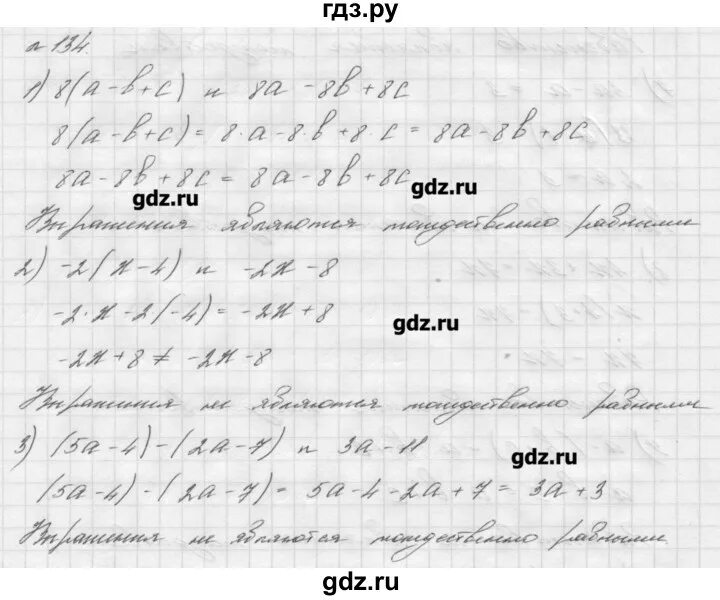 гдз.ру
№ 134.
1) 8(a-b+c) и 8a-8b+8c
8(a-b+c) = 8·a-8·b+8·c = 8a-8b+8c
8a-8b+8c = 8a-8b+8c
gdz.ru
gdz.ru
Выражения являются тождественно равными
2) -2(x-4) и -2x-8
-2·x-2(-4) = -2x+8
gdz.ru
-2x+8 ≠ -2x-8
Выражения не являются тождественно равными
3) (5a-4)-(2a-7) и 3a-11
gdz.ru
(5a-4)-(2a-7) = 5a-4-2a+7 = 3a+3
Выражения не являются тождественно равными
gdz.ru